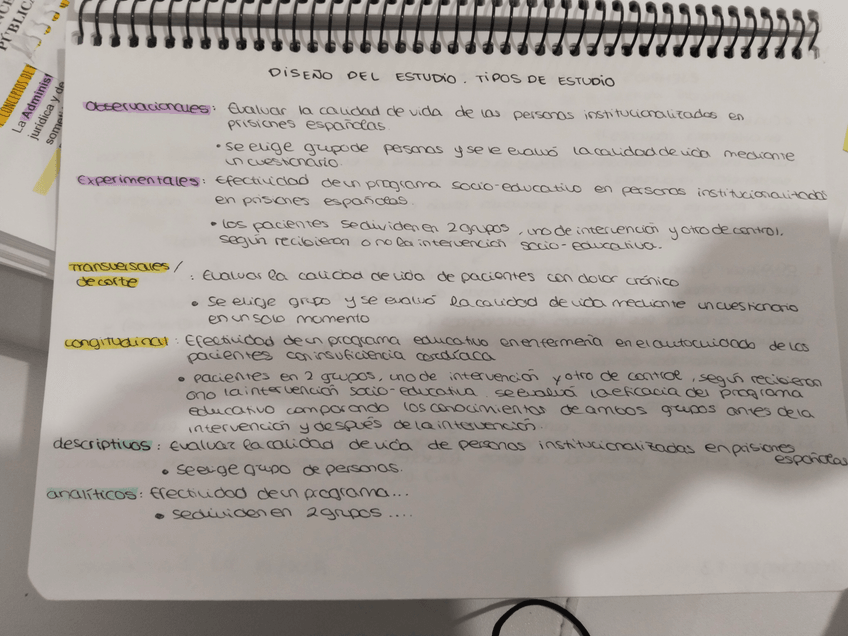 PÚBLICA
CONCEPTOS DE
La Administ
jurídica y de
somet
DISEÑO DEL ESTUDIO. TIPOS DE ESTUDIO
Observacionales: Evaluar la calidad de vida de las personas institucionalizados en
prisiones españolas.
• se elige grupo de pesonas y se le evaluó la calidad de vida mediante
un cuestionario.
Experimentales: Efectividad de un programa socio-educativo en personas institucionalitadas
en prisiones españolas.
• los pacientes se dividen en 2 grupos, uno de intervención y otro de control,
según recibieron o no la intervención socio-educativa.
Transversales/
de corte : Evaluar la calidad de vida de pacientes con dolor crónico
• se elige grupo y se evaluó la calidad de vida mediante un cuestionario
en un solo momento
Longitudinal: Efectividad de un programa educativo en enfermería en el autocuidado de los
pacientes con insuficiencia cardíaca
• pacientes en 2 grupos, uno de intervención y otro de control, según recibieron
o no la intervención socio-educativa. se evaluó la eficacia del programa
educativo comparando los conocimientos de ambos grupos antes de la
intervención y después de la intervención.
descriptivos: Evaluar la calidad de vida de personas institucionalizadas en prisiones
españolas
• se elige grupo de personas.
analíticos: Efectividad de un programa...
• se dividen en 2 grupos ....